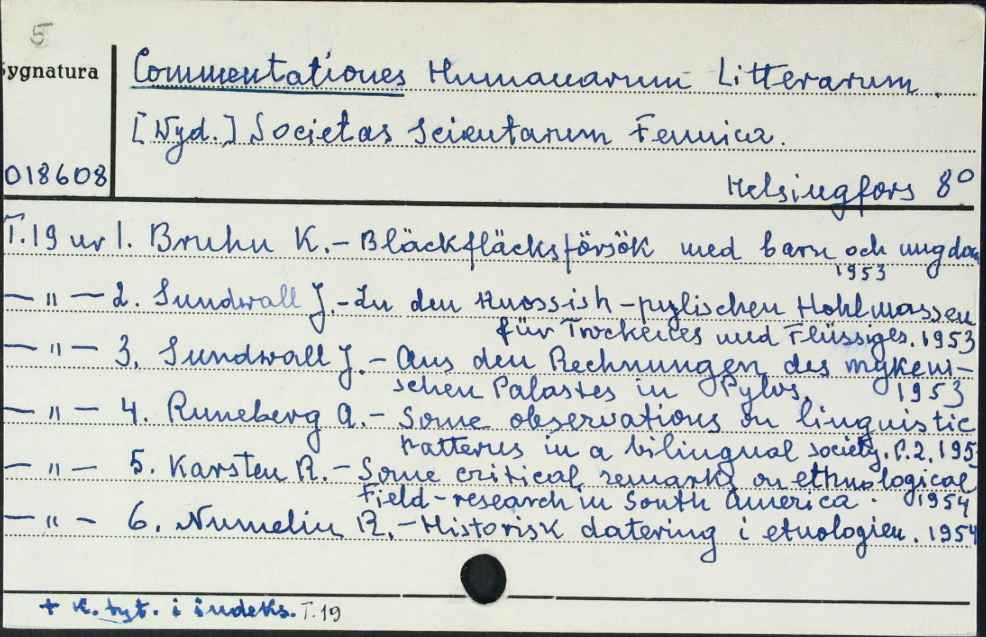 5
Sygnatura
Commentationes Humanarum Litterarum.
[Wyd.] Societas Scientarum Fennica.
018608
Helsingfors 8º
T.19 nr 1. Bruhn K. – Bläckfläcksförsök med barn och ungdom
1953
— " — 2. Sundwall J. – Zu den knossish-pylischen Hohlmassen
für Trockenes und Flüssiges. 1953
— " — 3. Sundwall J. – Aus den Rechnungen des mykeni-
schen Palastes in Pylos. 1953
— " — 4. Runeberg A. – Some observations on linguistic
patterns in a bilingual society. P.2. 195
— " — 5. Karsten R. – Some critical remarks on ethnological
Field-research in South America. 1954
— " — 6. Numelin R. – Historisk datering i etnologien. 1954
+ k. tyt. i indeks. T.19